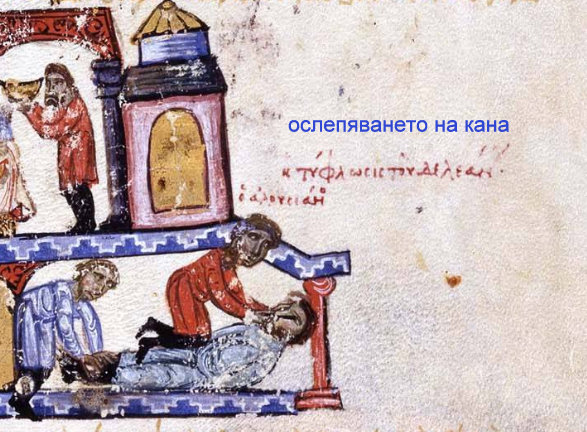 ослепяването на кана
κ τύφλωσις τοῦ δελεάν·
ὁ ἀλουσιάν